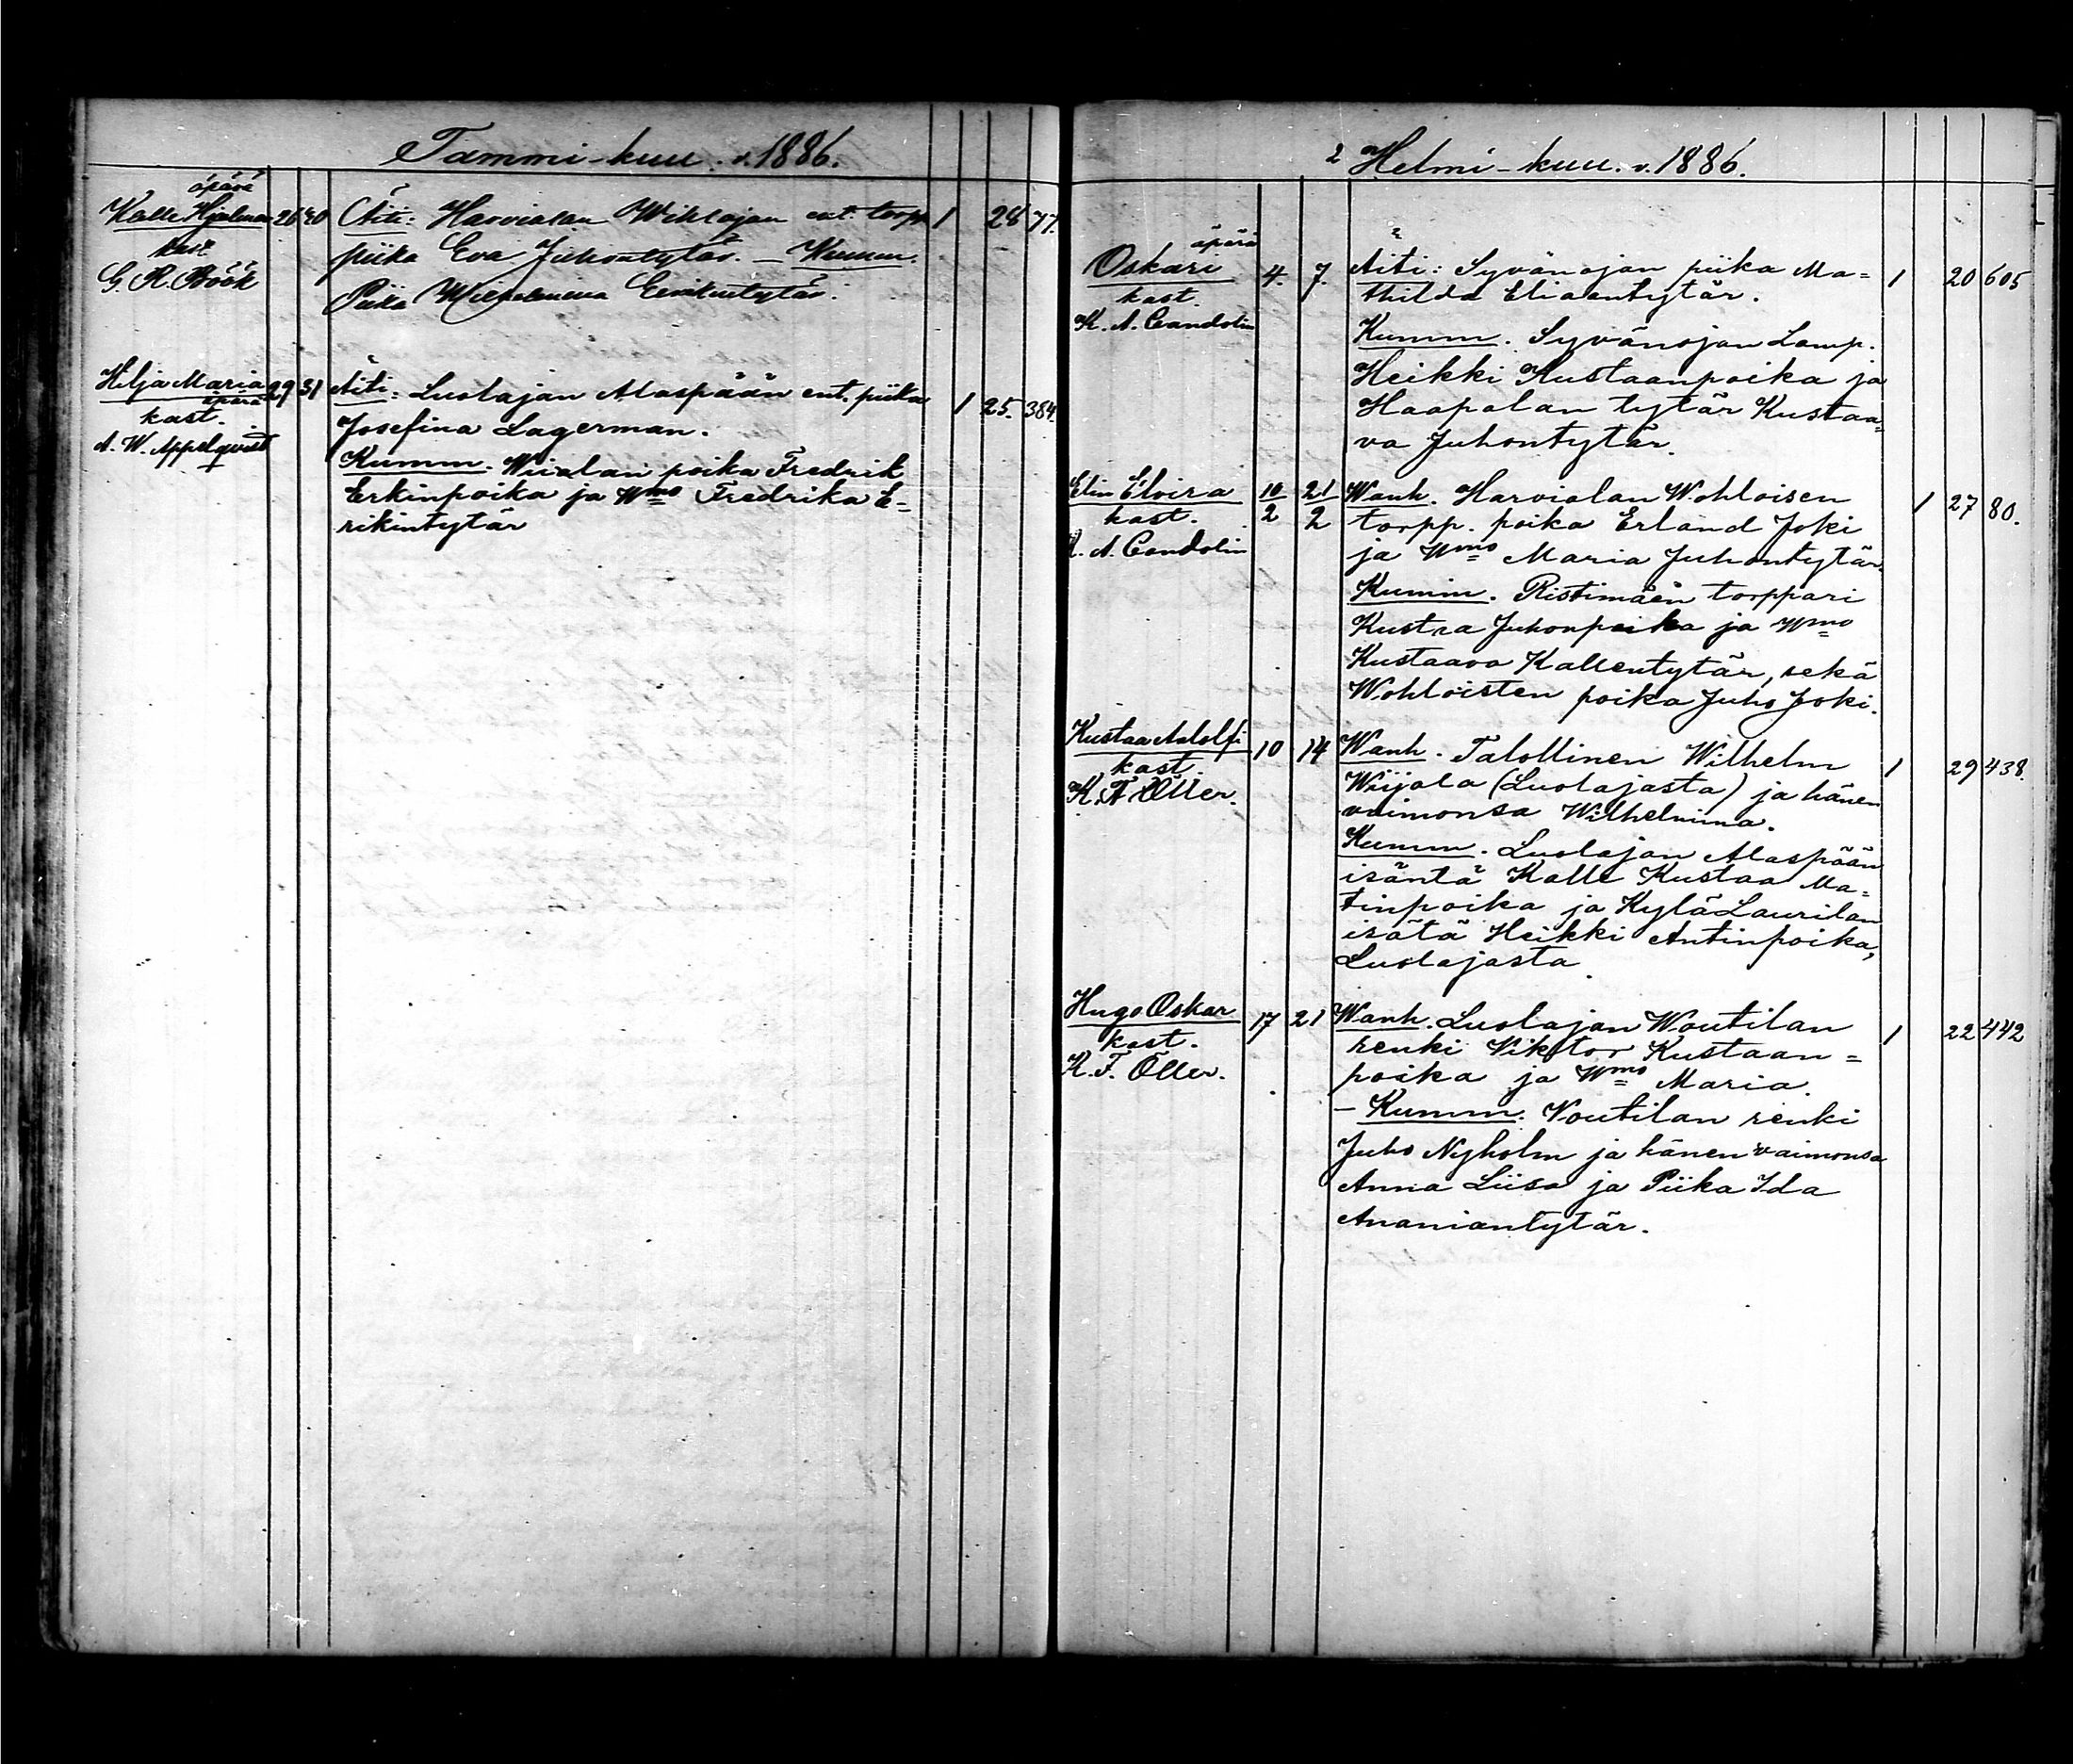 Tammi-kuu. v. 1886.
äpärä
Kalle Hjalmar 26 30 Äiti: Harvialan Wihlajan ent. torpp. 1 28 77.
kast. piika Eva Juhontytär. — Kumm.
G. R. Böök Piika Wilhelmina Eerikintytär.
Hilja Maria 29 31 Äiti: Luolajan Alaspään ent. piika 1 25. 384.
äpärä
kast. Josefina Lagerman.
A. W. Appelqvist Kumm. Wiialan poika Fredrik
Erkinpoika ja Wmo Fredrika E-
rikintytär
2 Helmi-kuu. v. 1886.
äpärä
Oskari 4. 7. Äiti: Syvänojan piika Ma= 1 20 605
kast. thilda Eliaantytär.
K. A. Candolin Kumm. Syvänojan Lamp.
Heikki Kustaanpoika ja
Haapalan tytär Kustaa=
va Juhontytär.
Elin Elvira 10/2 21/2 Wanh. Harvialan Wohloisen 1 27 80.
kast. torpp. poika Erland Joki
K. A. Candolin ja Wmo Maria Juhontytär.
Kumm. Ristimäen torppari
Kustaa Juhonpoika ja Wmo
Kustaava Kallentytär, sekä
Wohloisten poika Juho Joki.
Kustaa Adolfi 10 14 Wanh. Talollinen Wilhelm 1 29 438.
kast. Wiijala (Luolajasta) ja hänen
K. F. Öller. vaimonsa Wilhelmina.
Kumm. Luolajan Alaspään
isäntä Kalle Kustaa Ma=
tinpoika ja KyläLaurilan
isätä Heikki Antinpoika,
Luolajasta.
Hugo Oskar 17 21 Wanh. Luolajan Woutilan 1 22 442
kast. renki Viktor Kustaan=
K. F. Öller. poika ja Wmo Maria.
— Kumm. Voutilan renki
Juho Nyholm ja hänen vaimonsa
Anna Liisa ja Piika Ida
Ananiantytär.